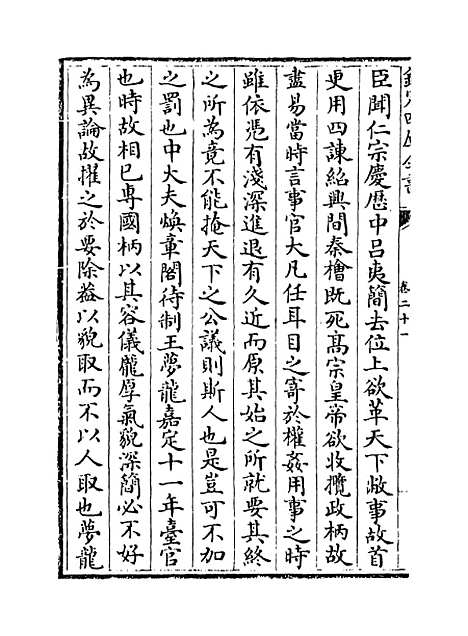 欽定四庫全書
卷二十一
臣聞仁宗慶歷中吕夷簡去位上欲革天下敝事故首
更用四諫紹興間秦檜既死髙宗皇帝欲收攬政柄故
盡易當時言事官大凡任耳目之寄於權姦用事之時
雖依憑有淺深進退有久近而原其始之所就要其終
之所為竟不能掩天下之公議則斯人也是豈可不加
之罰也中大夫煥章閣待制王夢龍嘉定十一年臺官
也時故相已專國柄以其容儀龎厚氣貌深簡必不好
為異論故擢之於要除葢以貌取而不以人取也夢龍